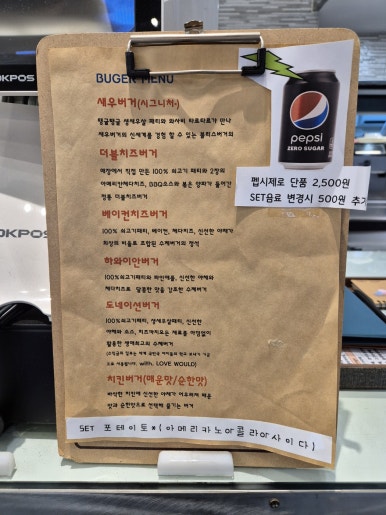 OKPOS
BUGER MENU
새우버거(시그니처)
탱글탱글 생새우살 패티와 와사비 타르타르가 만나
새우버거의 신세계를 경험 할 수 있는 블리스버거의
더블치즈버거
매장에서 직접 만든 100% 쇠고기 패티와 2장의
아메리칸체다치즈, BBQ소스와 볶은 양파가 들어간
정통 더블치즈버거
베이컨치즈버거
100% 쇠고기패티, 베이컨, 체다치즈, 신선한 야채가
최상의 비율로 조합된 수제버거의 정석
하와이안버거
100%쇠고기패티와 파인애플, 신선한 야채와
체다치즈로 달콤한 맛을 강조한 수제버거
도네이션버거
100%쇠고기패티, 생새우살패티, 신선한
야채와 소스, 치즈까지모든 재료를 아낌없이
활용한 생애최고의 수제버거
with, LOVE WOULD)
치킨버거(매운맛/순한맛)
바삭한 치킨에 신선한 야채가 어우러져 매운
맛과 순한맛으로 선택해 즐기는 버거
SET 포테이토*(아메리카노아콜라아사이다)
pepsi
ZERO SUGAR
펩시제로 단품 2,500원
SET음료 변경시 500원 추가
OKPOS